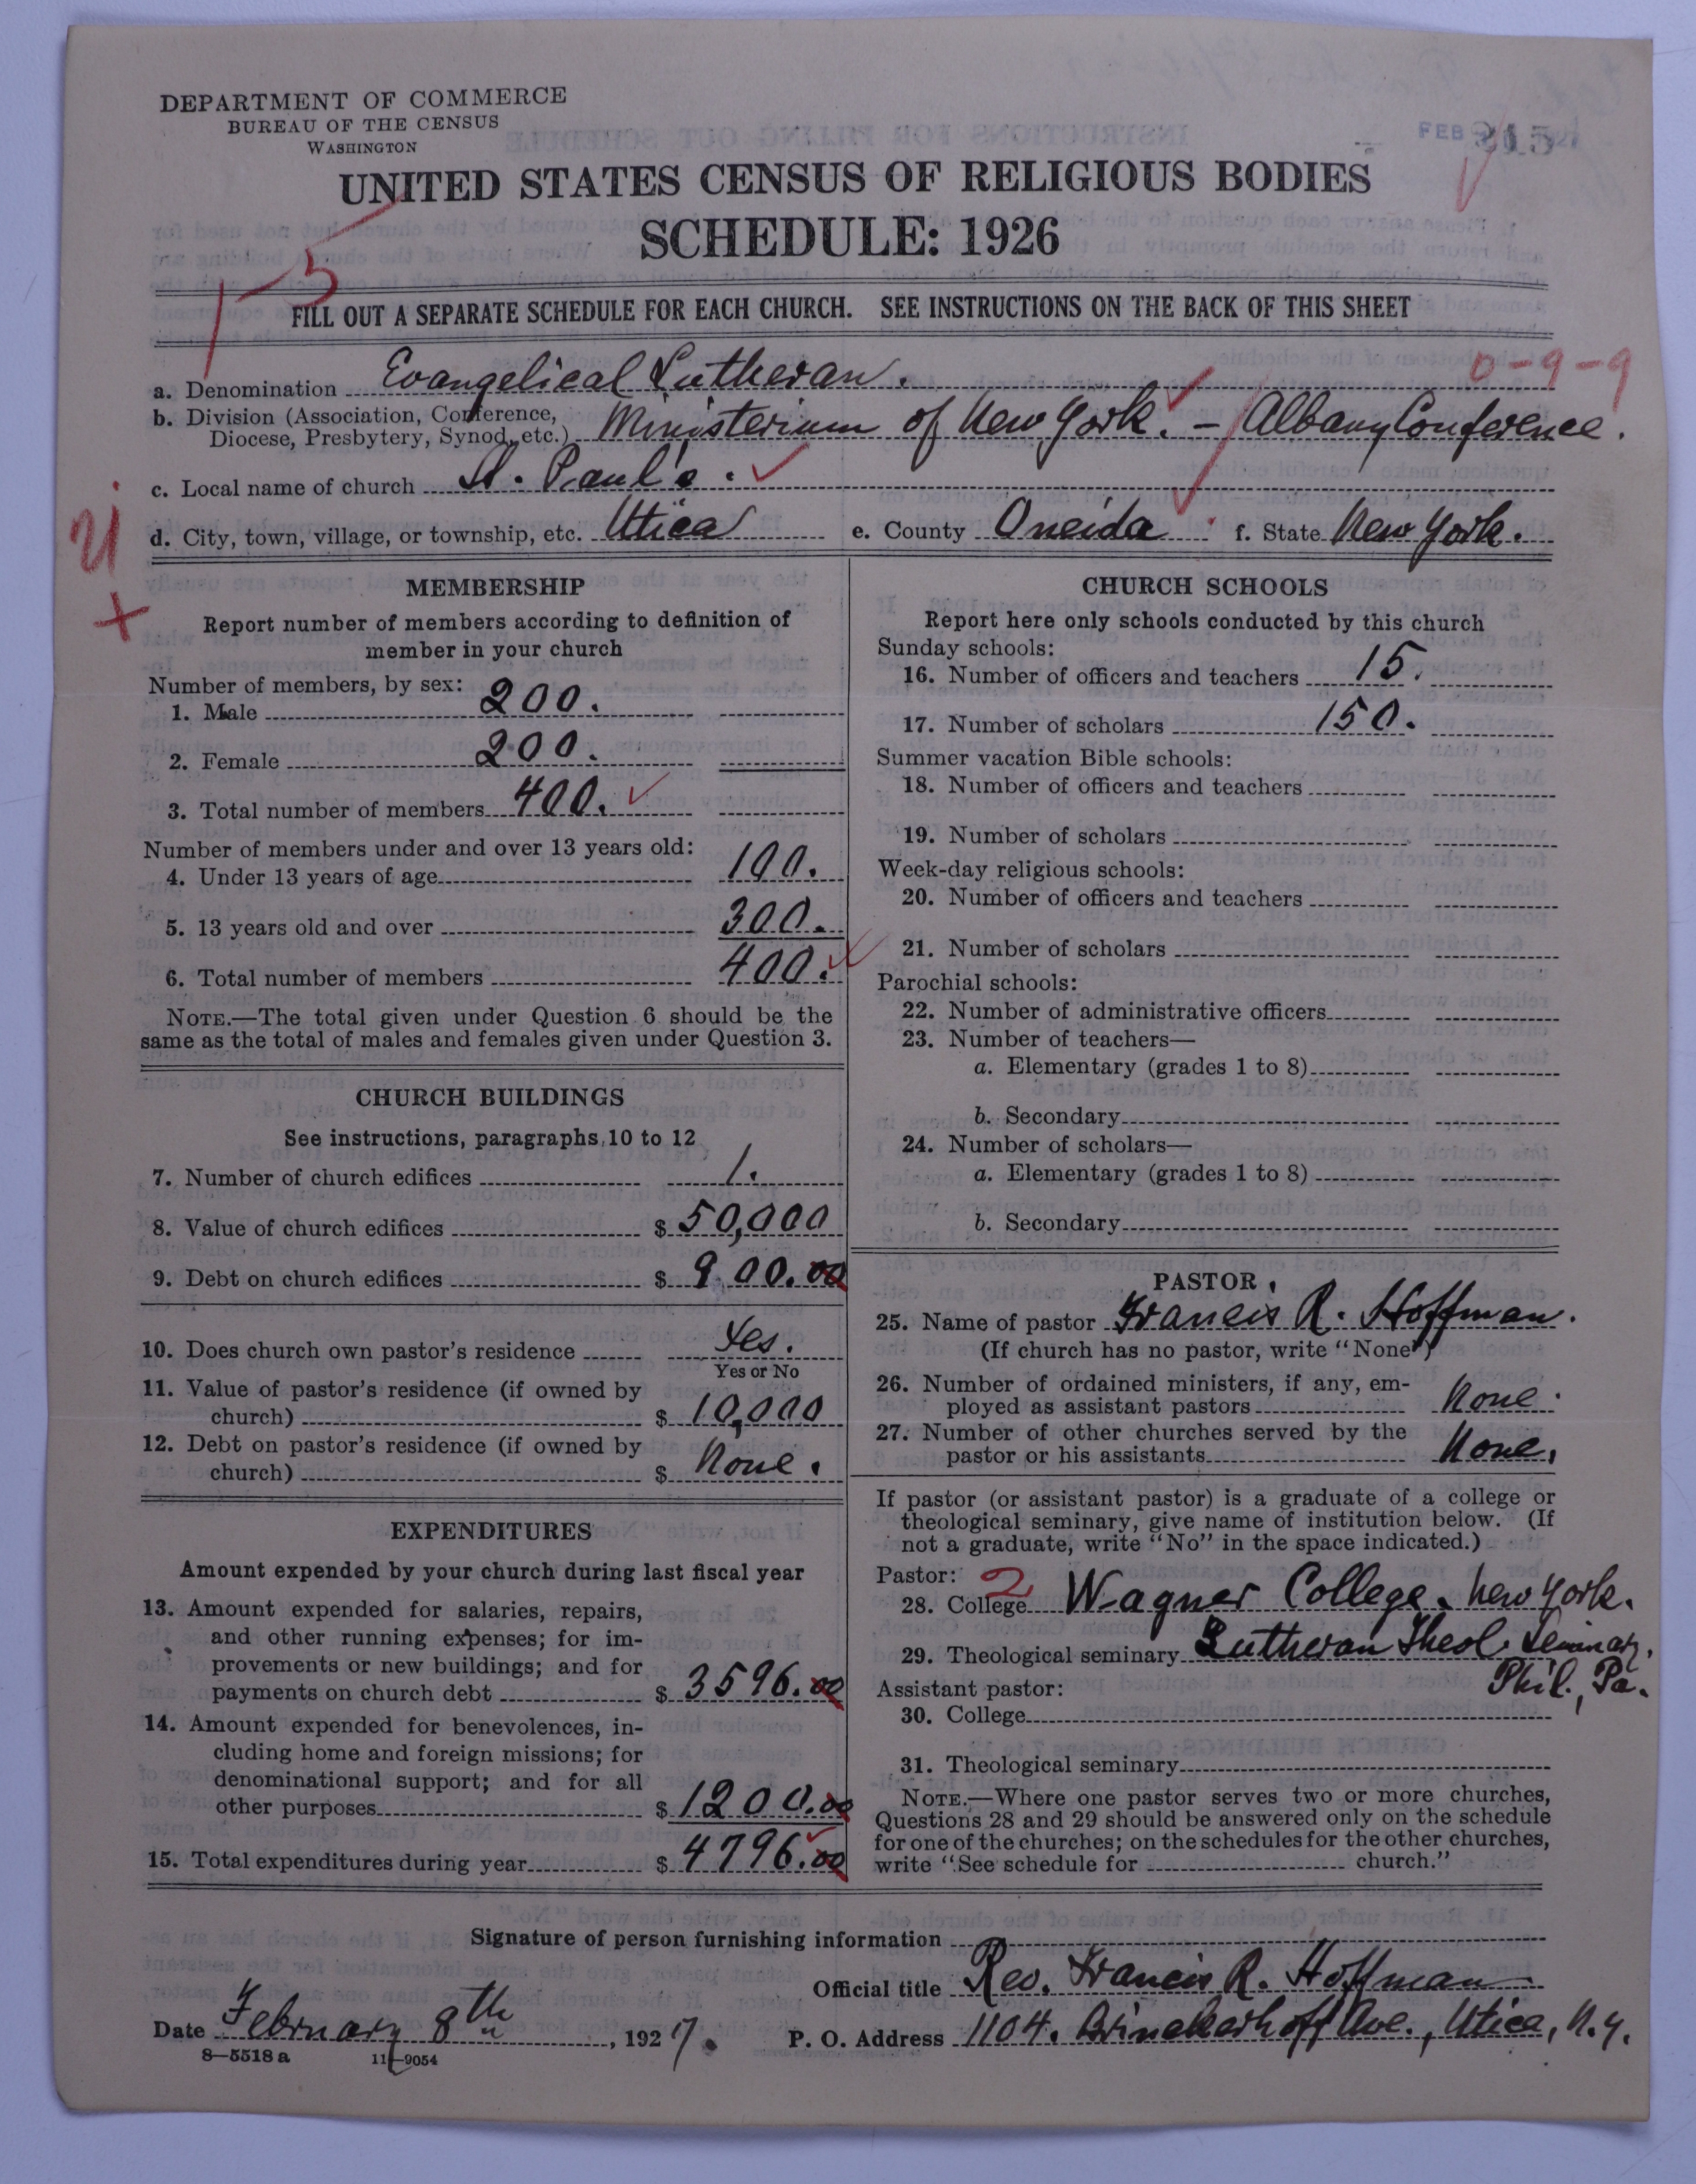 DEPARTMENT OF COMMERCE
BUREAU OF THE CENSUS
WASHINGTON
FEB
UNITED STATES CENSUS OF RELIGIOUS BODIES
SCHEDULE: 1926
15
FILL OUT A SEPARATE SCHEDULE FOR EACH CHURCH. SEE INSTRUCTIONS ON THE BACK OF THIS SHEET
0-9-9
a. Denomination Evangelical Lutheran.
b. Division (Association, Conference, Diocese, Presbytery, Synod, etc.) Ministerium of New York. - Albany Conference.
c. Local name of church St. Paul's.
d. City, town, village, or township, etc. Utica e. County Oneida f. State New York.
MEMBERSHIP
Report number of members according to definition of
member in your church
Number of members, by sex:
1. Male 200.
2. Female 200.
3. Total number of members 400.
Number of members under and over 13 years old:
4. Under 13 years of age 100.
5. 13 years old and over 300.
6. Total number of members 400.
NOTE.—The total given under Question 6 should be the
same as the total of males and females given under Question 3.
CHURCH BUILDINGS
See instructions, paragraphs 10 to 12
7. Number of church edifices 1.
8. Value of church edifices $ 50,000
9. Debt on church edifices $ 900.00
10. Does church own pastor's residence Yes.
Yes or No
11. Value of pastor's residence (if owned by
church) $ 10,000
12. Debt on pastor's residence (if owned by
church) $ None.
EXPENDITURES
Amount expended by your church during last fiscal year
13. Amount expended for salaries, repairs,
and other running expenses; for im-
provements or new buildings; and for
payments on church debt $ 3596.00
14. Amount expended for benevolences, in-
cluding home and foreign missions; for
denominational support; and for all
other purposes $ 1200.00
15. Total expenditures during year $ 4796.00
CHURCH SCHOOLS
Report here only schools conducted by this church
Sunday schools:
16. Number of officers and teachers 15.
17. Number of scholars 150.
Summer vacation Bible schools:
18. Number of officers and teachers
19. Number of scholars
Week-day religious schools:
20. Number of officers and teachers
21. Number of scholars
Parochial schools:
22. Number of administrative officers
23. Number of teachers—
a. Elementary (grades 1 to 8)
b. Secondary
24. Number of scholars—
a. Elementary (grades 1 to 8)
b. Secondary
PASTOR
25. Name of pastor Francis R. Hoffman.
(If church has no pastor, write "None")
26. Number of ordained ministers, if any, em-
ployed as assistant pastors None.
27. Number of other churches served by the
pastor or his assistants None.
If pastor (or assistant pastor) is a graduate of a college or
theological seminary, give name of institution below. (If
not a graduate, write "No" in the space indicated.)
Pastor: 2
28. College Wagner College. New York.
29. Theological seminary Lutheran Theol. Seminary.
Phil., Pa.
Assistant pastor:
30. College
31. Theological seminary
NOTE.—Where one pastor serves two or more churches,
Questions 28 and 29 should be answered only on the schedule
for one of the churches; on the schedules for the other churches,
write "See schedule for church."
Signature of person furnishing information
Official title Rev. Francis R. Hoffman
Date February 8th, 1927. P. O. Address 1104. Brinckerhoff Ave., Utica, N.Y.
8—5518a 11—9054